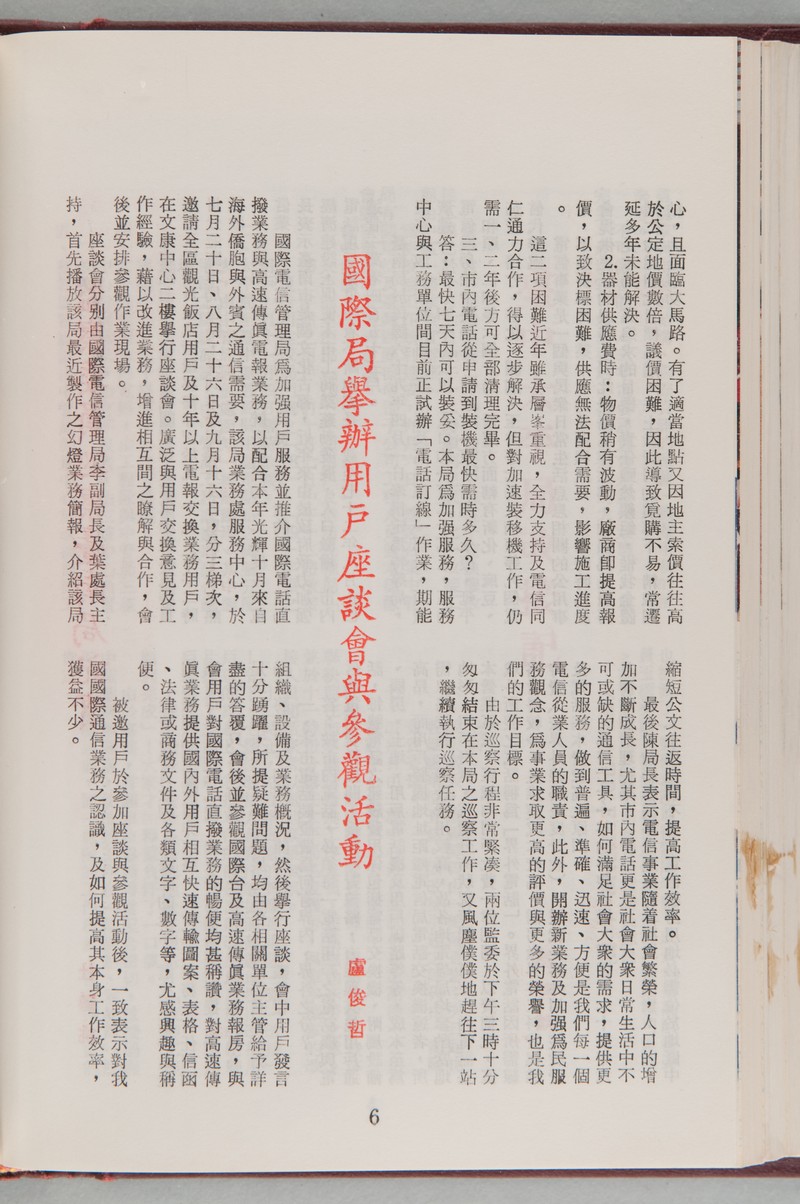 心，且面臨大馬路。有了適當地點又因地主索價往往高
於公定地價數倍，議價困難，因此導致覓購不易，常遷
延多年未能解決。
2.器材供應費時：物價稍有波動，廠商卽提高報
價，以致決標困難，供應無法配合需要，影響施工進度
。
這二項困難近年雖承層峯重視，全力支持及電信同
仁通力合作，得以逐步解決，但對加速裝移機工作，仍
需一、二年後方可全部清理完畢。
三、市內電話從申請到裝機最快需時多久？
答：最快七天內可以裝妥。本局爲加强服務，服務
中心與工務單位間目前正試辦「電話訂線」作業，期能
縮短公文往返時間，提高工作效率。
最後陳局長表示電信事業隨着社會繁榮，人口的增
加不斷成長，尤其市內電話更是社會大衆日常生活中不
可或缺的通信工具，如何滿足社會大衆的需求，提供更
多的服務，做到普遍、準確、迅速、方便是我們每一個
電信從業人員的職責，此外，開辦新業務及加强爲民服
務觀念，爲事業求取更高的評價與更多的榮譽，也是我
們的工作目標。
由於巡察行程非常緊凑，兩位監委於下午三時十分
匆匆結束在本局之巡察工作，又風塵僕僕地趕往下一站
，繼續執行巡察任務。
國際局擧辦用戶座談會與參觀活動
盧俊哲
國際電信管理局爲加强用戶服務並推介國際電話直
撥業務與高速傳眞電報業務，以配合本年光輝十月來自
海外僑胞與外賓之通信需要，該局業務處服務中心，於
七月二十日、八月二十六日及九月十六日，分三梯次，
邀請全區觀光飯店用戶及十年以上電報交換業務用戶，
在文康中心二樓擧行座談會。廣泛與用戶交換意見及工
作經驗，藉以改進業務，增進相互間之瞭解與合作，會
後並安排參觀作業現場。
座談會分别由國際電信管理局李副局長及葉處長主
持，首先播放該局最近製作之幻燈業務簡報，介紹該局
組織、設備及業務概況，然後擧行座談，會中用戶發言
十分踴躍，所提疑難問題，均由各相關單位主管給予詳
盡的答覆，會後並參觀國際台及高速傳眞業務報房，與
會用戶對國際電話直撥業務的暢便均甚稱讚，對高速傳
眞業務提供國內外用戶相互快速傳輸圖案、表格、信函
、法律或商務文件及各類文字、數字等，尤感興趣與稱
便。
被邀用戶於參加座談與參觀活動後，一致表示對我
國國際通信業務之認識，及如何提高其本身工作效率，
獲益不少。
6